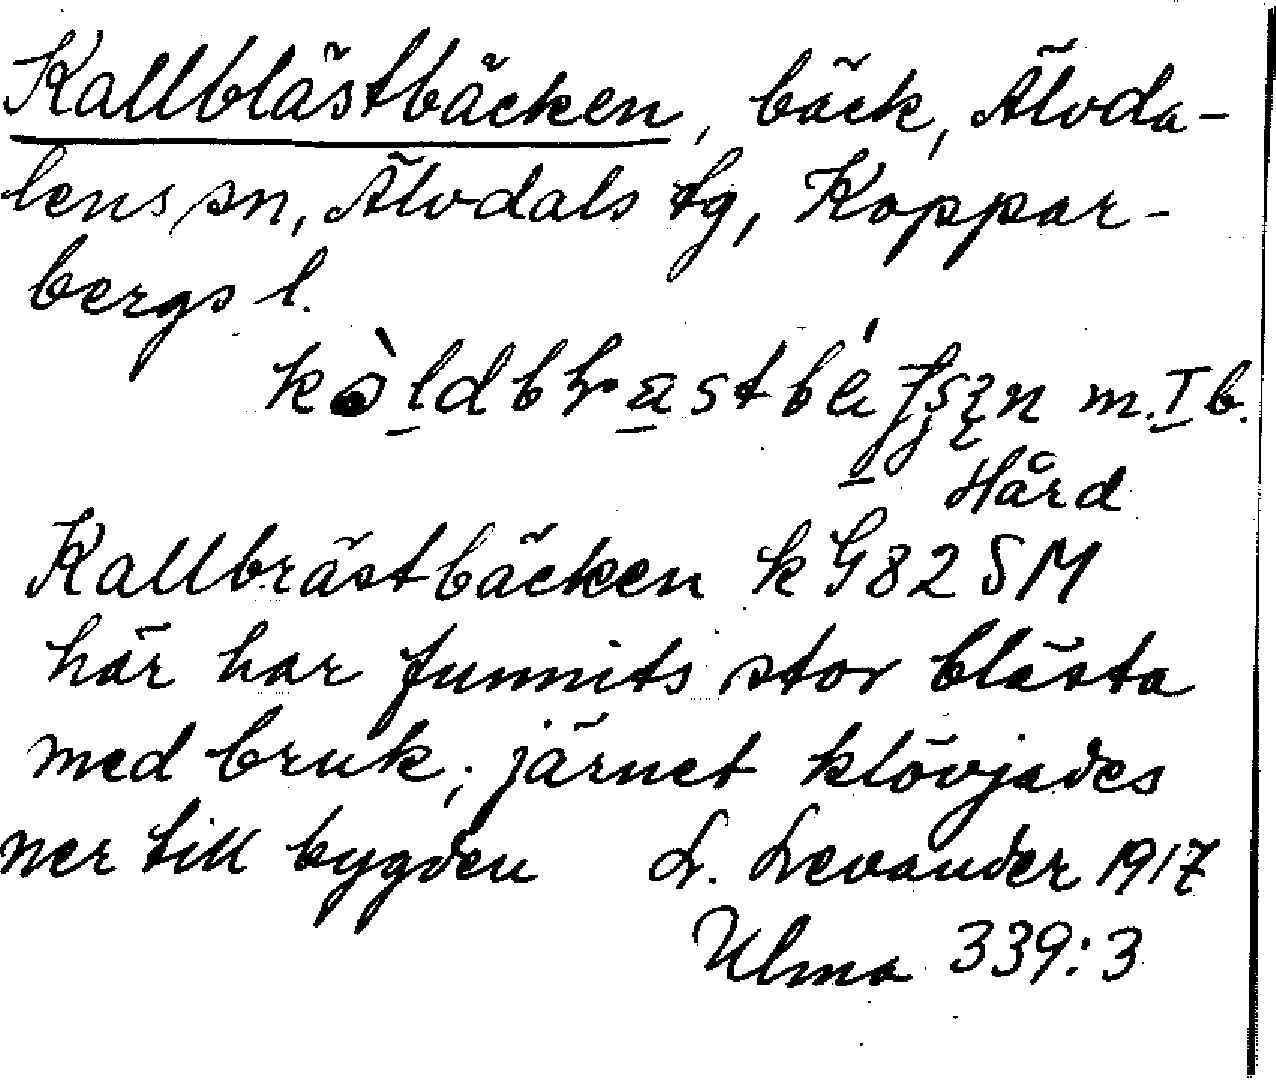 Kallblästbäcken, bäck, Älvda-
lens sn, Älvdals tg, Koppar-
bergs l.
m. I b.
Hård
Kallbrästbäcken k G82 SM
här har funnits stor blästa
med bruk; järnet klövjades
ner till bygden L. Levander 1917
Ulma 339:3